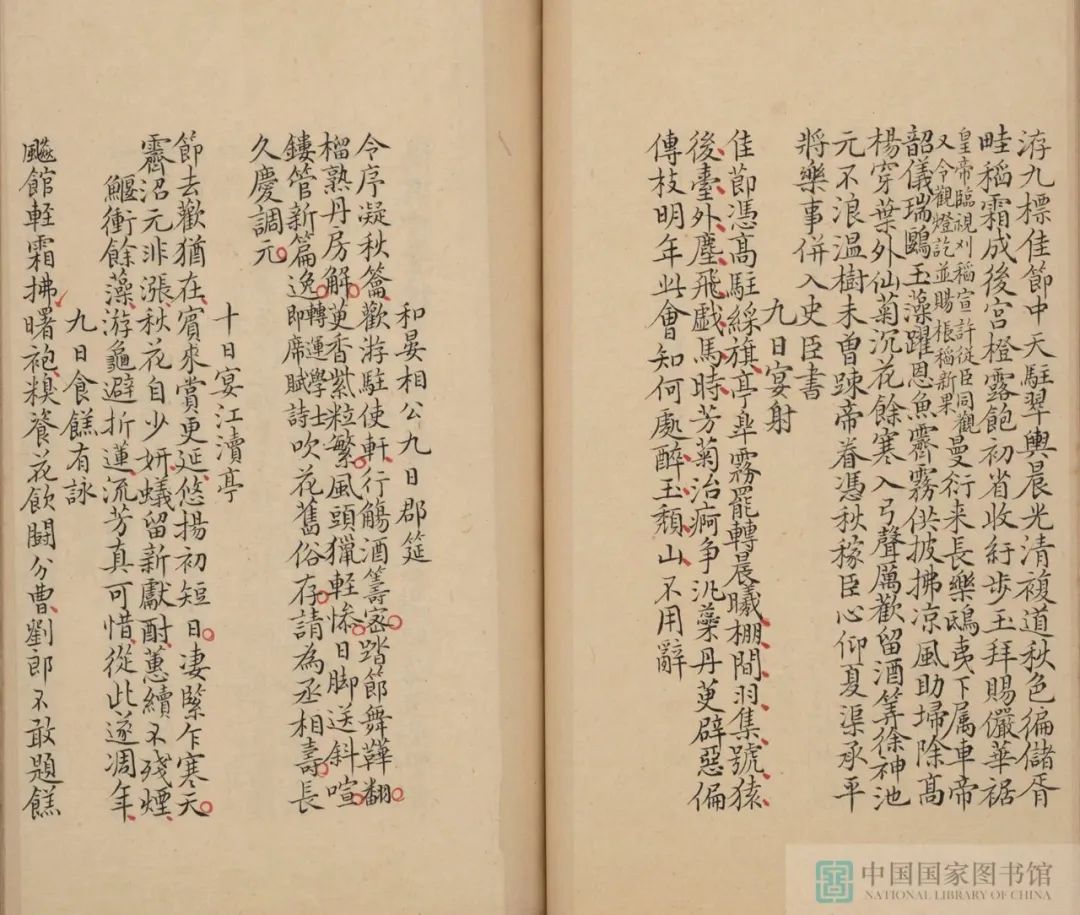 洊九標佳節中天駐翠輿晨光清複道秋色徧儲胥
畦稻霜成後宮橙露飽初省收紆步玉拜賜儼華裾
皇帝臨視刈稻宣許從臣同觀
又令觀燈訖並賜棖稻新果
曼衍来長樂鴟夷下属車帝
韶儀瑞鷗玉藻躍恩魚霽霧供披拂凉風助埽除髙
楊穿葉外仙菊沉花餘寒入弓聲厲歡留酒筭徐神池
元不浪温樹未曽踈帝眷憑秋稼臣心仰夏渠承平
將樂事併入史臣書
九日宴射
佳節憑髙駐綵旗亭臯霧罷轉晨曦棚間羽集號猿
後臺外塵飛戯馬時芳菊治痾争汎蘂丹萸辟惡偏
傳枝明年此會知何處醉玉頽山不用辭
和晏相公九日郡筵
令序凝秋籥歡游駐使軒行觴酒籌宻踏節舞鞾翻
榴熟丹房解萸香紫粒繁風頭獵輕㥽日脚送斜喧
鏤管新篇逸
轉運學士
即席賦詩
吹花舊俗存請為丞相壽長
久慶調元
十日宴江瀆亭
節去歡猶在賓來賞更延悠揚初短日凄緊乍寒天
霽沼元非漲秋花自少妍蟻留新獻酎蕙續不殘煙
鰋衝餘藻游龜避折蓮流芳真可惜從此遂凋年
九日食餻有詠
飈館軽霜拂曙袍糗餈花飲鬪分曹劉郎不敢題餻
中国国家图书馆
NATIONAL LIBRARY OF CHINA